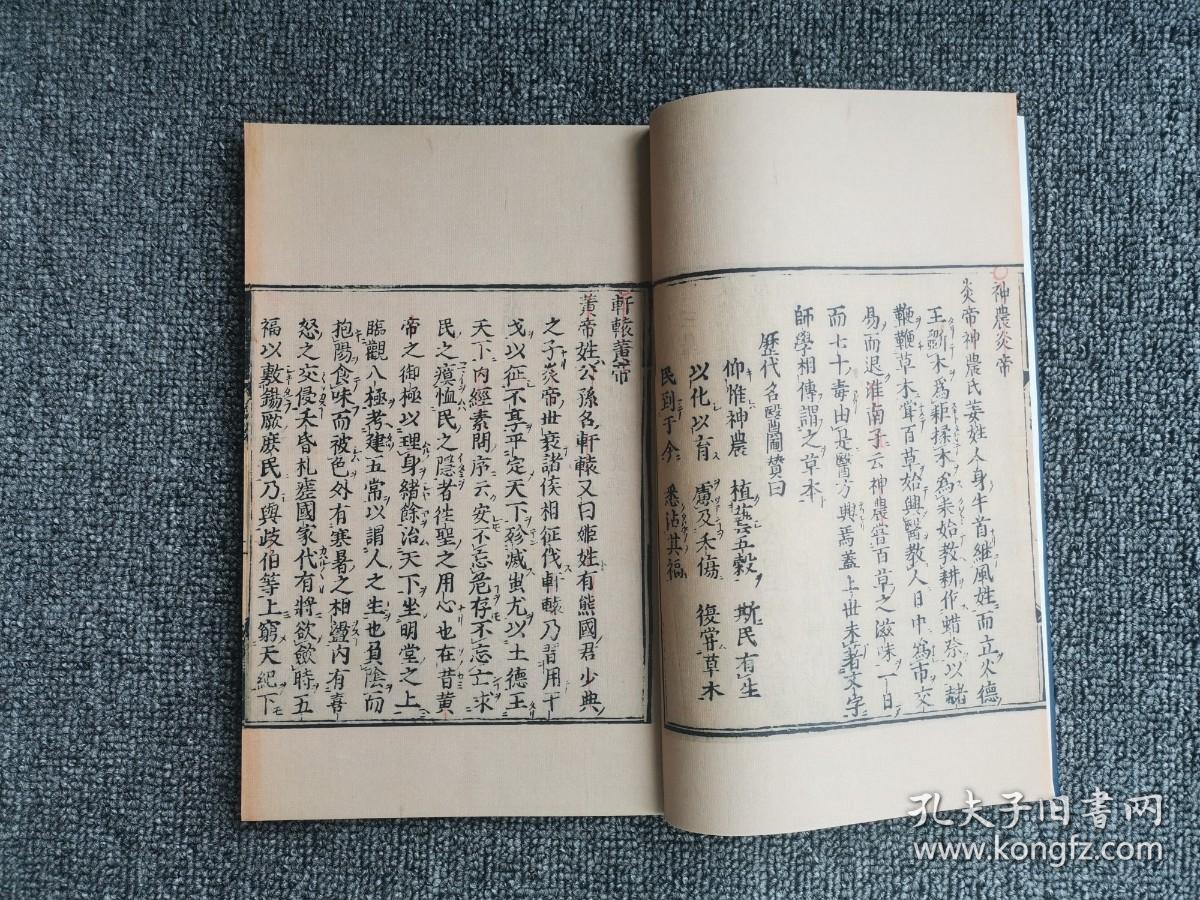 神農炎帝
炎帝神農氏姜姓人身牛首繼風姓而立火德
王斲木爲耜揉木爲耒始教耕作蜡祭以赭
鞭鞭草木甞百草始興醫教人日中爲市交
易而退淮南子云神農甞百草之滋味一日
而七十毒由是醫方興焉蓋上世未著文字
師學相傳謂之草本
歷代名醫圖贊曰
仰惟神農 植藝五穀 斯民有生
以化以育 慮及夭傷 復甞草木
民到于今 悉沾其福
軒轅黃帝
黃帝姓公孫名軒轅又曰姬姓有熊國君少典
之子炎帝世衰諸侯相征伐軒轅乃習用干
戈以征不享平定天下殄滅蚩尤以土德王
天下内經素問序云安不忘危存不忘亡求
民之瘼恤民之隱者徃聖之用心也在昔黃
帝之御極以理身緒餘治天下坐明堂之上
臨觀八極考建五常以謂人之生也負陰而
抱陽食味而被色外有寒暑之相盪内有喜
怒之交侵夭昏札瘥國家代有將欲歛時五
福以敷錫厥庶民乃與歧伯等上窮天紀下
孔夫子旧書网
www.kongfz.com